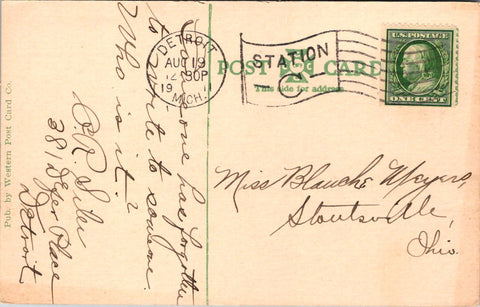 Someone has forgotten
to write to someone.
Who is it?
381 Dyer Place
Detroit
Pub. by Western Post Card Co.
DETROIT
AUG 19
12 30P
19
MICH.
STATION
C
POST CARD
This side for address.
U.S. POSTAGE
ONE CENT
Miss Blanche Meyers,
Stoutsville,
Ohio.